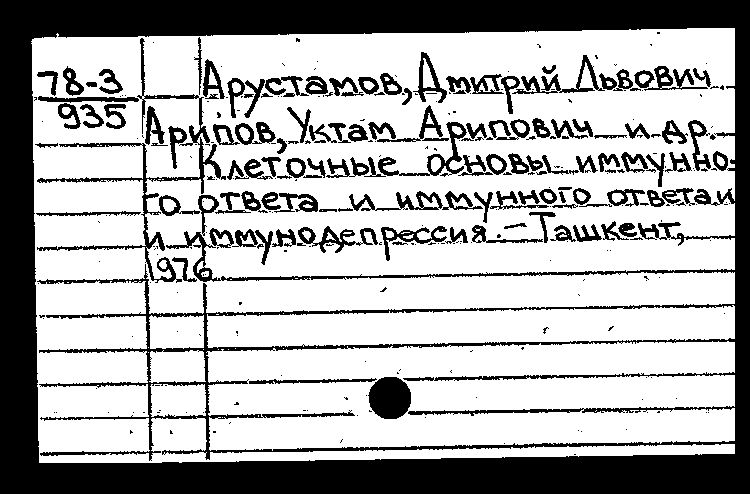 78-3 Арустамов, Дмитрий Львович
935 Арипов, Уктам Арипович и др.
Клеточные основы иммунно-
го ответа и иммунного ответа и
и иммунодепрессия. – Ташкент,
1976.